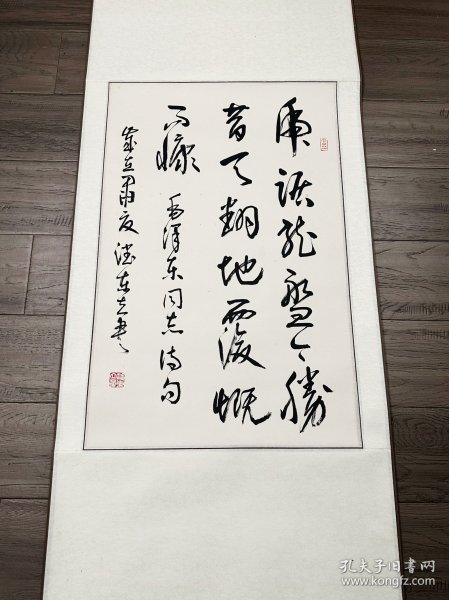 虎踞龙盘今勝
昔天翻地覆慨
而慷
毛泽东同志诗句
孔夫子旧书网
www.kongfz.com